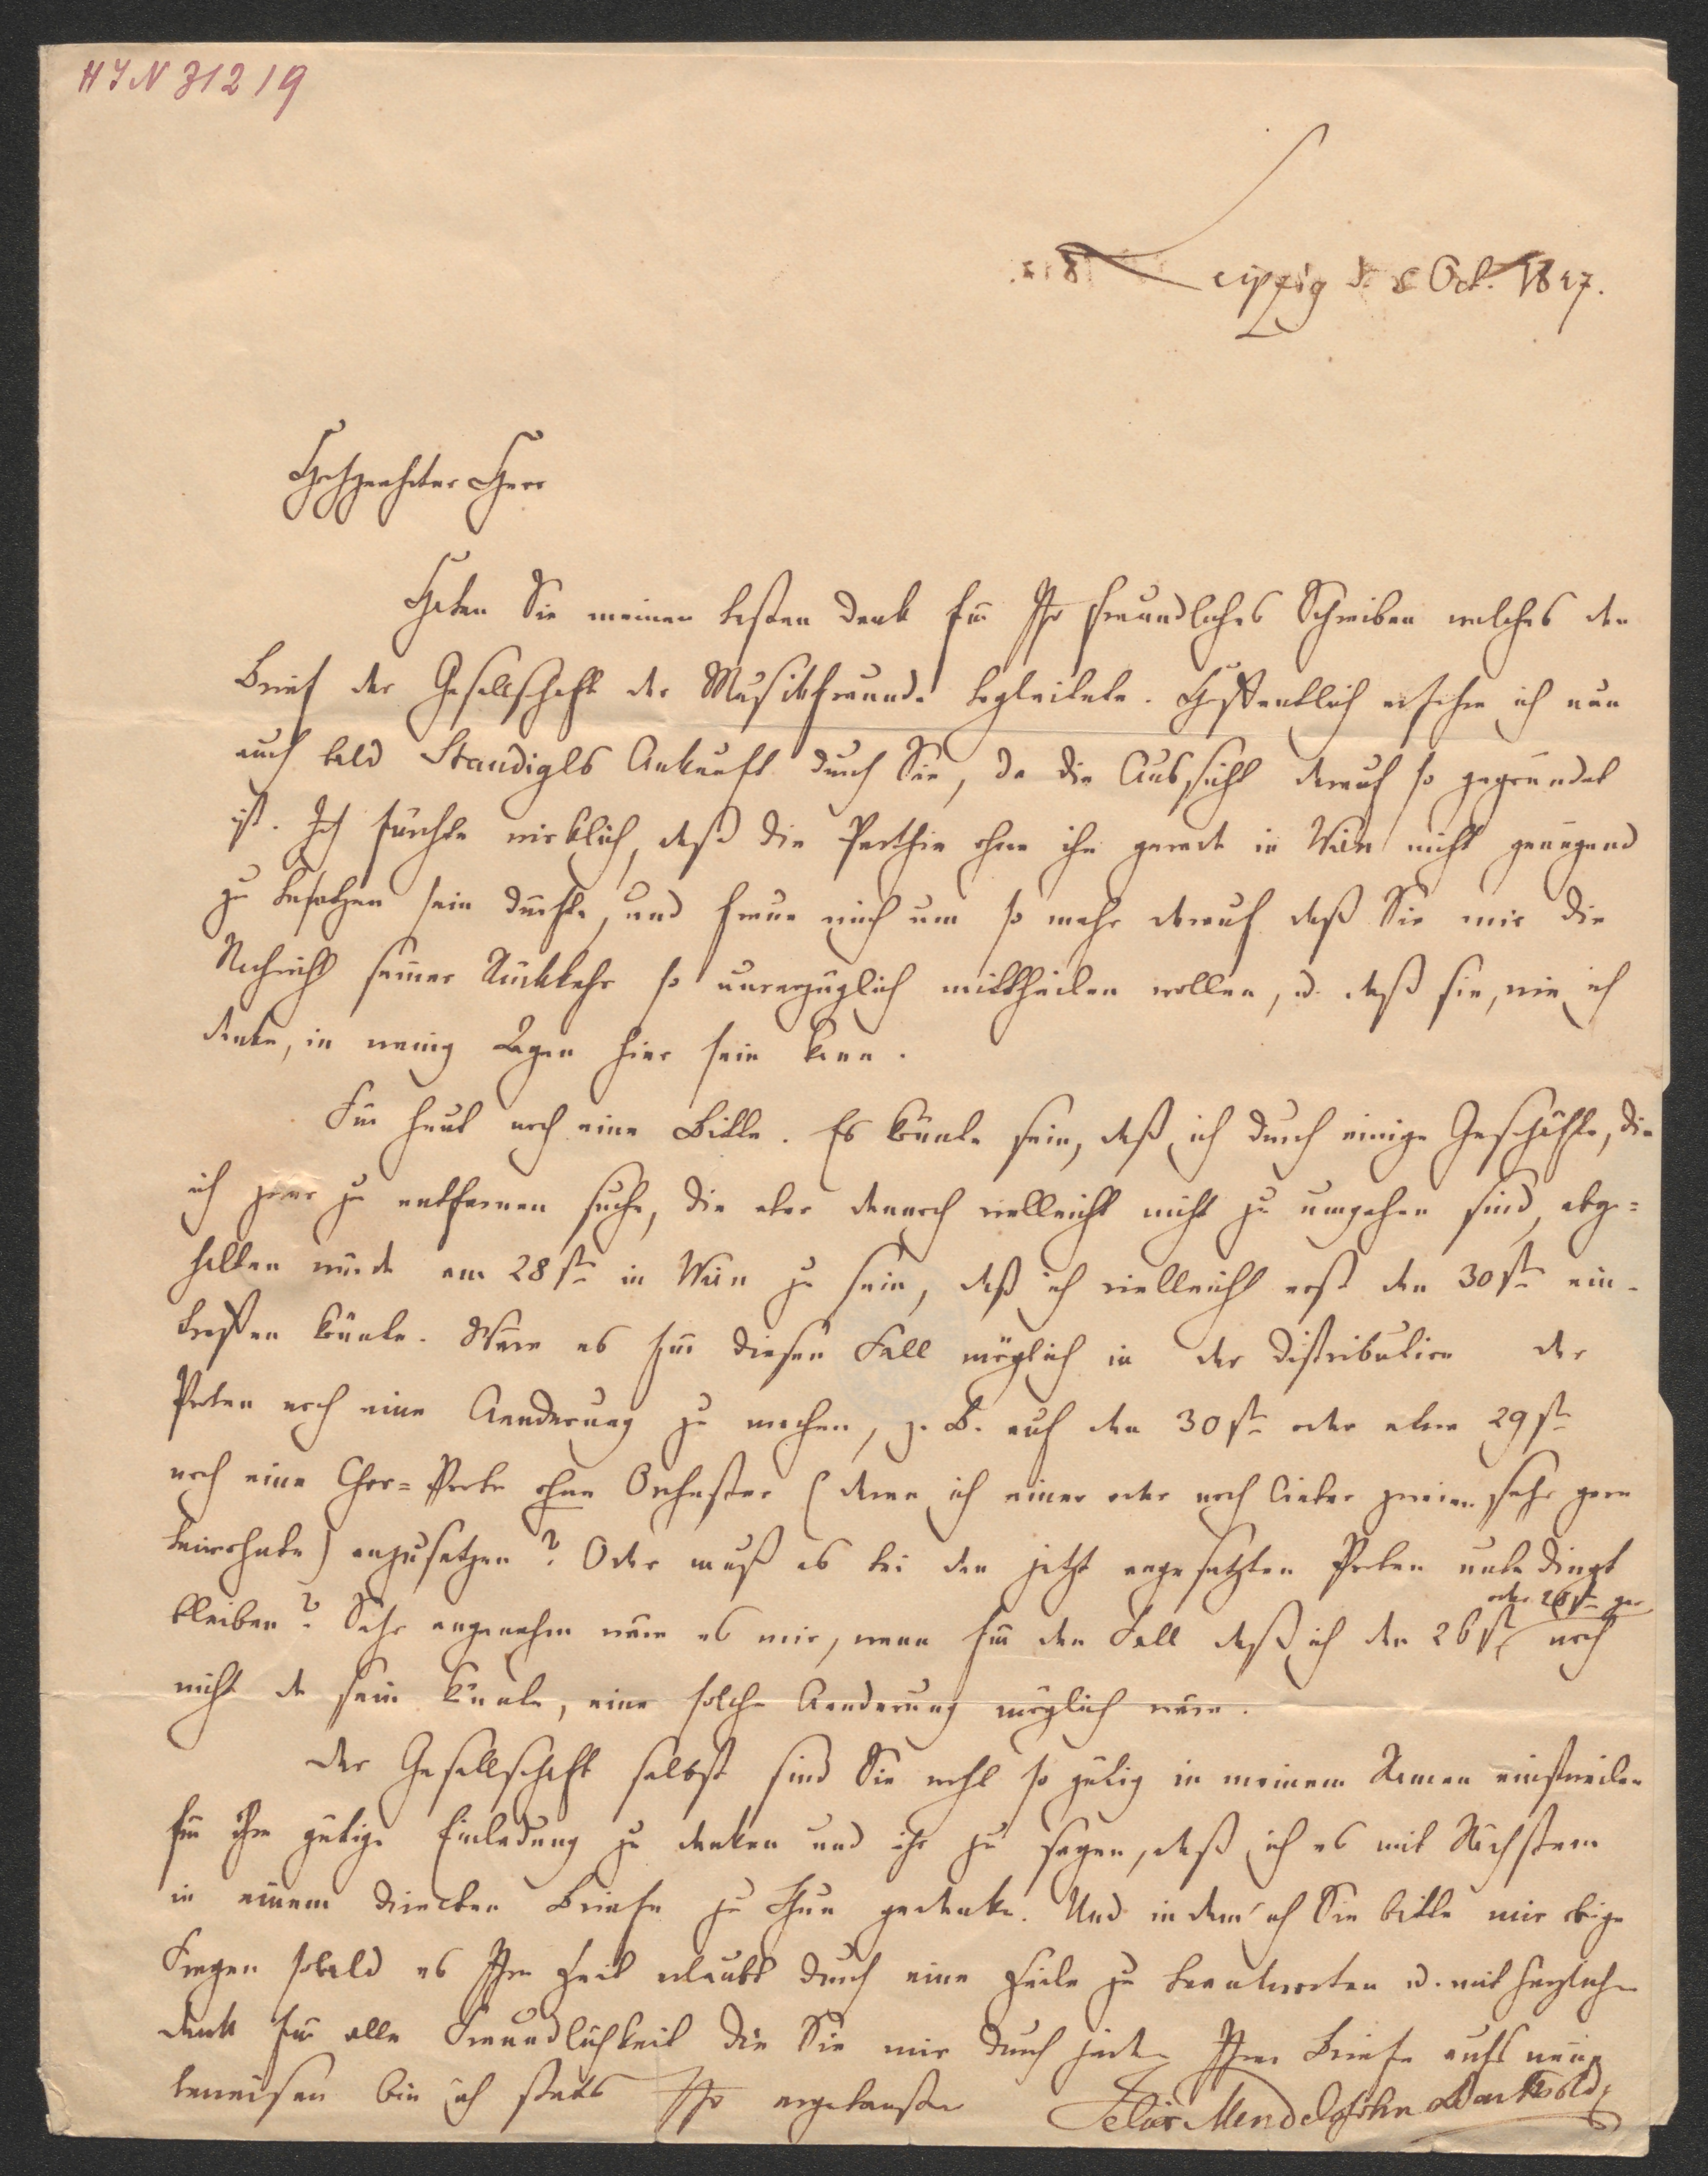 HIN 31219
Leipzig d. 8 Oct. 1847.
Hochgeehrter Herr
Haben Sie meinen besten Dank für Ihr freundliches Schreiben welches den
Brief der Gesellschaft der Musikfreunde begleitete. Hoffentlich erfahre ich nun
auch bald Staudigls Ankunft durch Sie, da die Aussicht darauf so gegründet
ist. Ich fürchte wirklich, daß die Parthie ohne ihn gerade in Wien nicht genügend
zu besetzen sein dürfte, und freue mich um so mehr darauf daß Sie mir die
Nachricht seiner Rückkehr so unverzüglich mittheilen wollen, u. daß sie, wie ich
denke, in wenig Tagen hier sein kann.
Für heut noch eine Bitte. Es könnte sein, daß ich durch einige Geschäfte, die
ich zwar zu entfernen suche, die aber dennoch vielleicht nicht zu umgehen sind, abge=
halten würde am 28sten in Wien zu sein, daß ich vielleicht erst den 30sten ein-
treffen könnte. Wäre es für diesen Fall möglich in der Distribution der
Proben noch eine Aenderung zu machen, z. B. auf den 30sten oder aben 29sten
noch eine Chor=Probe ohne Orchester (deren ich einer oder noch lieber zweien sehr gern
beiwohnte) anzusetzen? Oder muß es bei den jetzt angesetzten Proben unbedingt
bleiben? Sehr angenehm wäre es mir, wenn für den Fall daß ich den 26sten oder 28sten gar noch
nicht da sein könnte, eine solche Aenderung möglich wäre.
Der Gesellschaft selbst sind Sie wohl so gütig in meinem Namen einstweilen
für ihre gütige Einladung zu danken und ihr zu sagen, daß ich es mit Nächstem
in einem directen Briefe zu thun gedenke. Und indem ich Sie bitte mir obige
Fragen sobald es Ihre Zeit erlaubt durch eine Zeile zu beantworten u. mit herzlichem
Dank für alle Freundlichkeit die Sie mir durch jeden Ihrer Briefe aufs neue
beweisen bin ich stets Ihr ergebenster Felix Mendelssohn Bartholdy